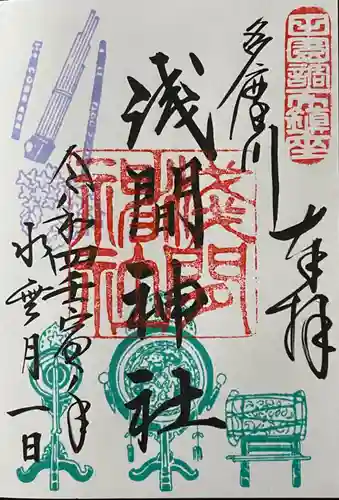 田園調布鎮座
奉拝
多摩川
浅間神社
浅間神社
令和四壬寅年
水無月一日